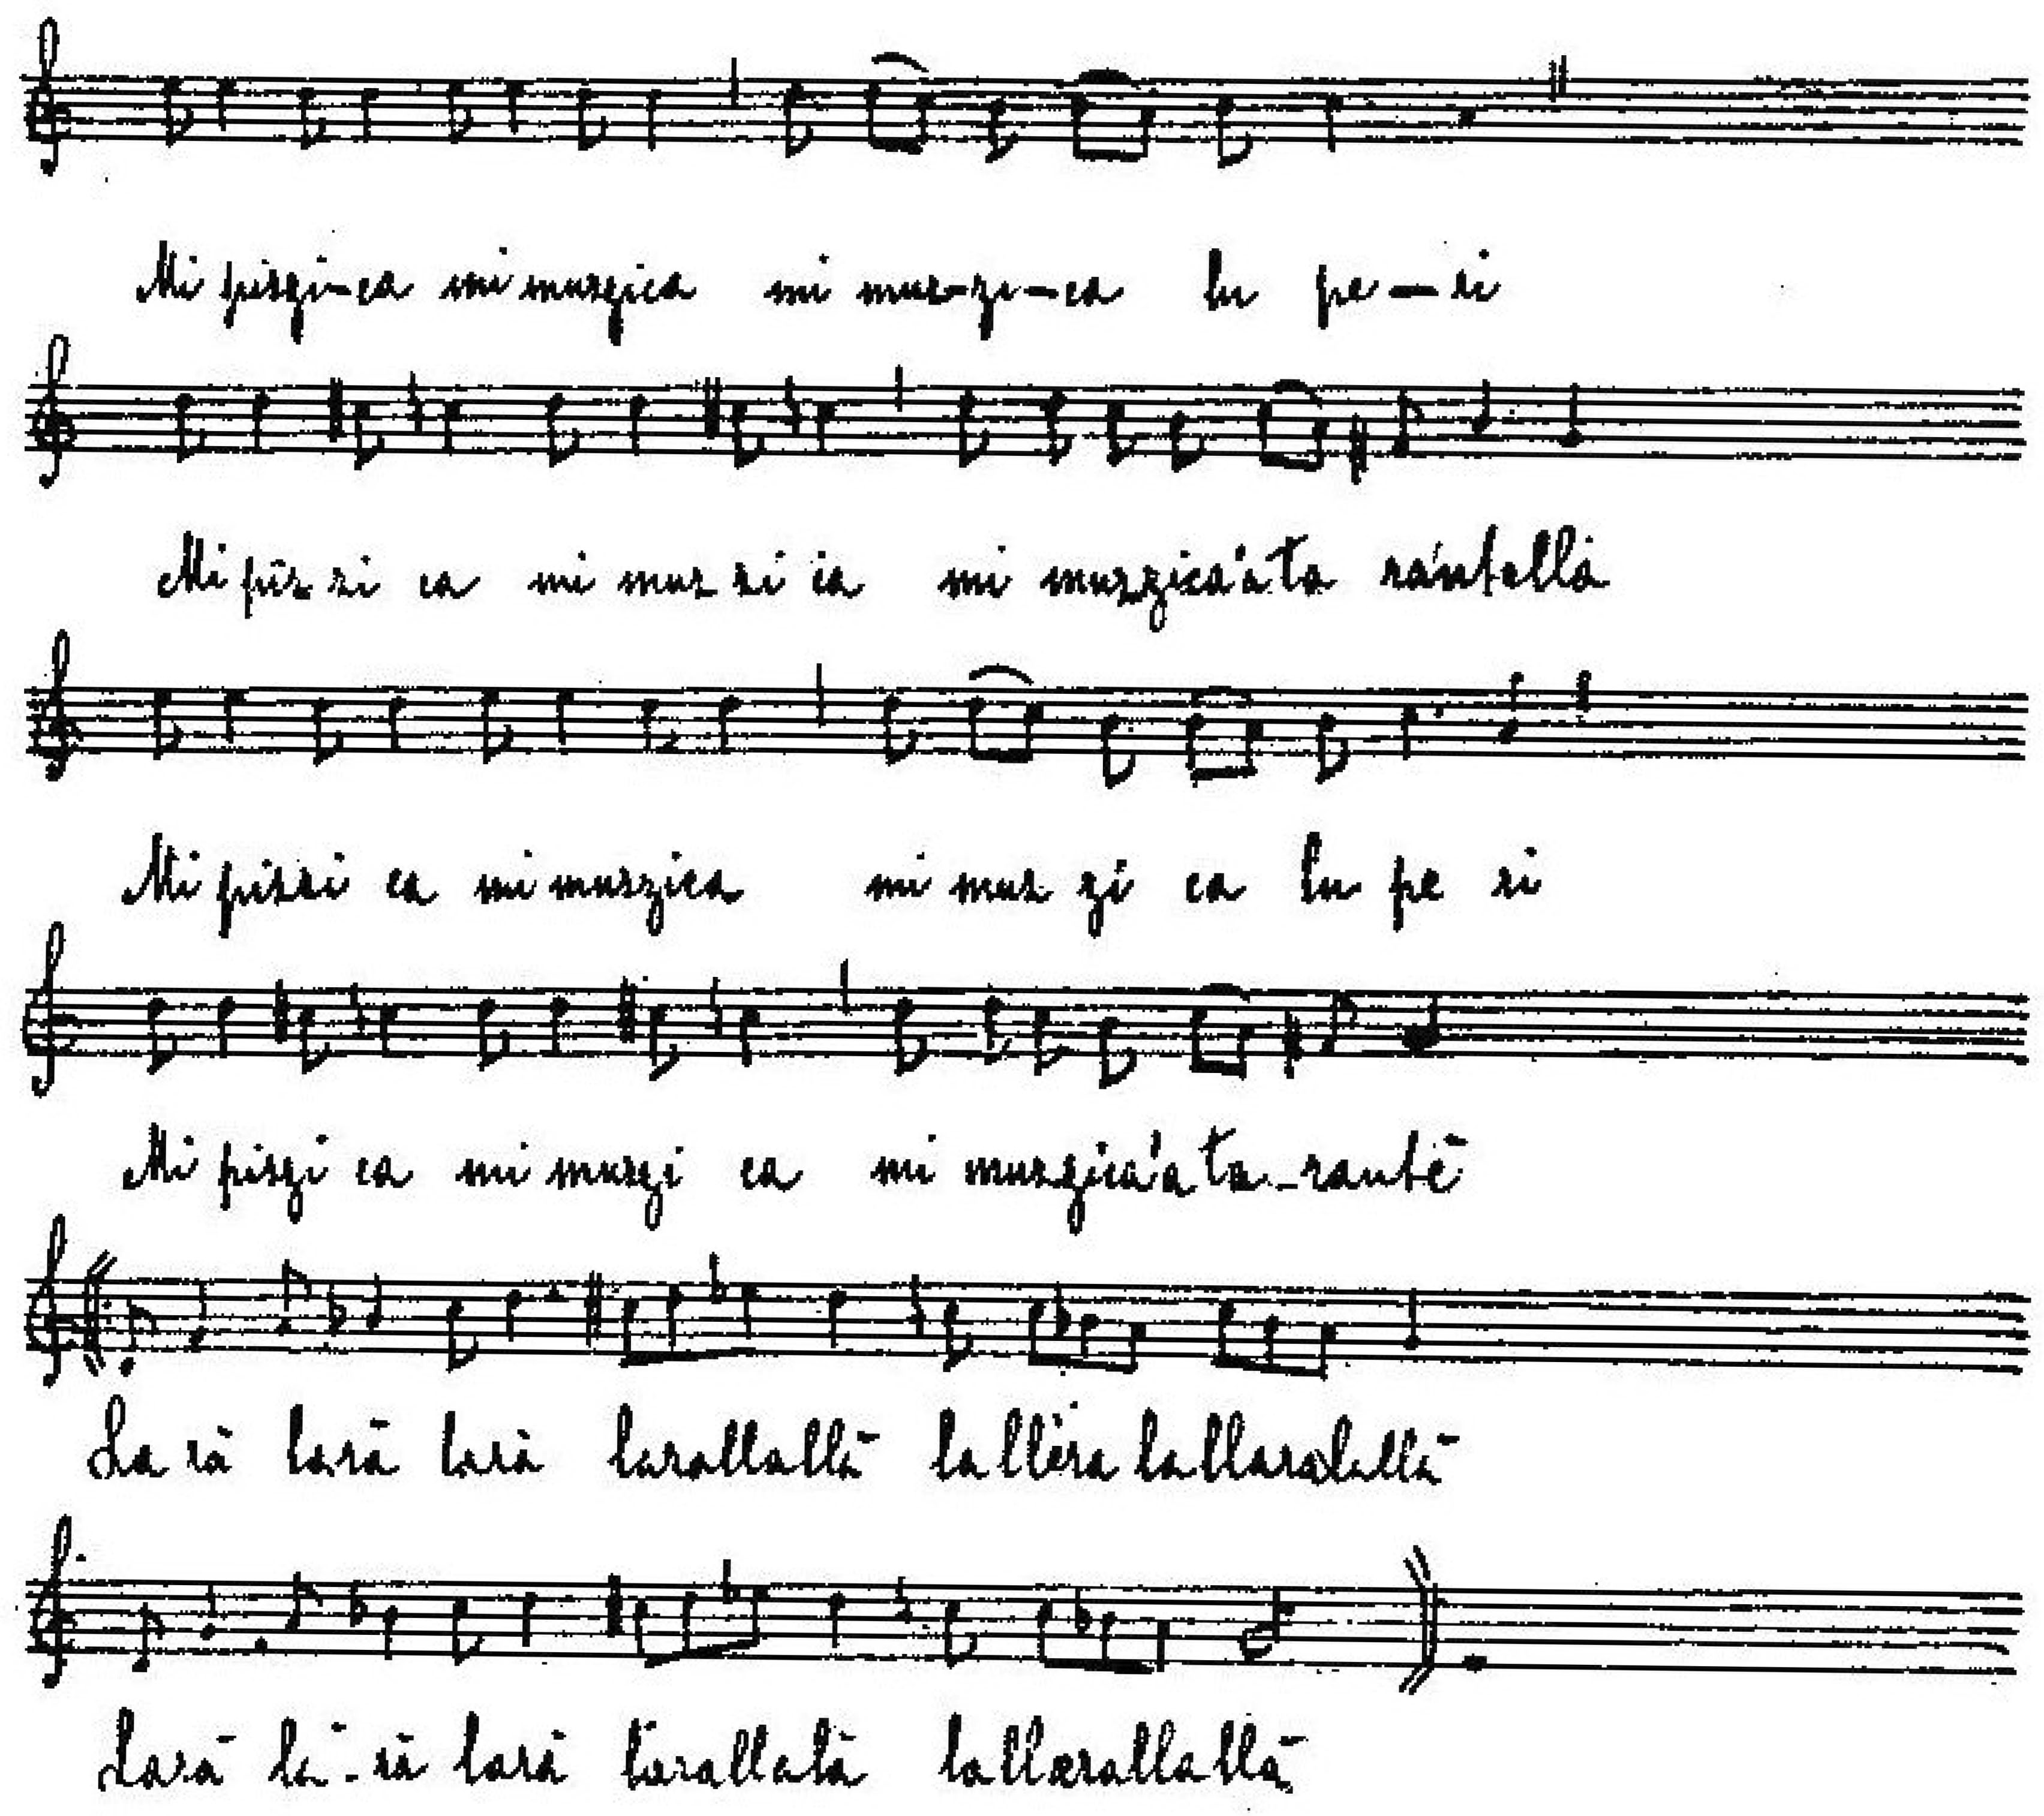 Mi pizzi-ca mi muzzica mi muz-zi-ca lu pe-ri
Mi piz zi ca mi muz zi ca mi muzzica'a ta rantella
Mi pizzi ca mi muzzica mi muz zi ca lu pe ri
Mi pizzi ca mi muzzi ca mi muzzica'a ta-rantè
La rà larà larà larallallà lallèra lallaralallà
Larà là-rà larà larallalà lallerallallà